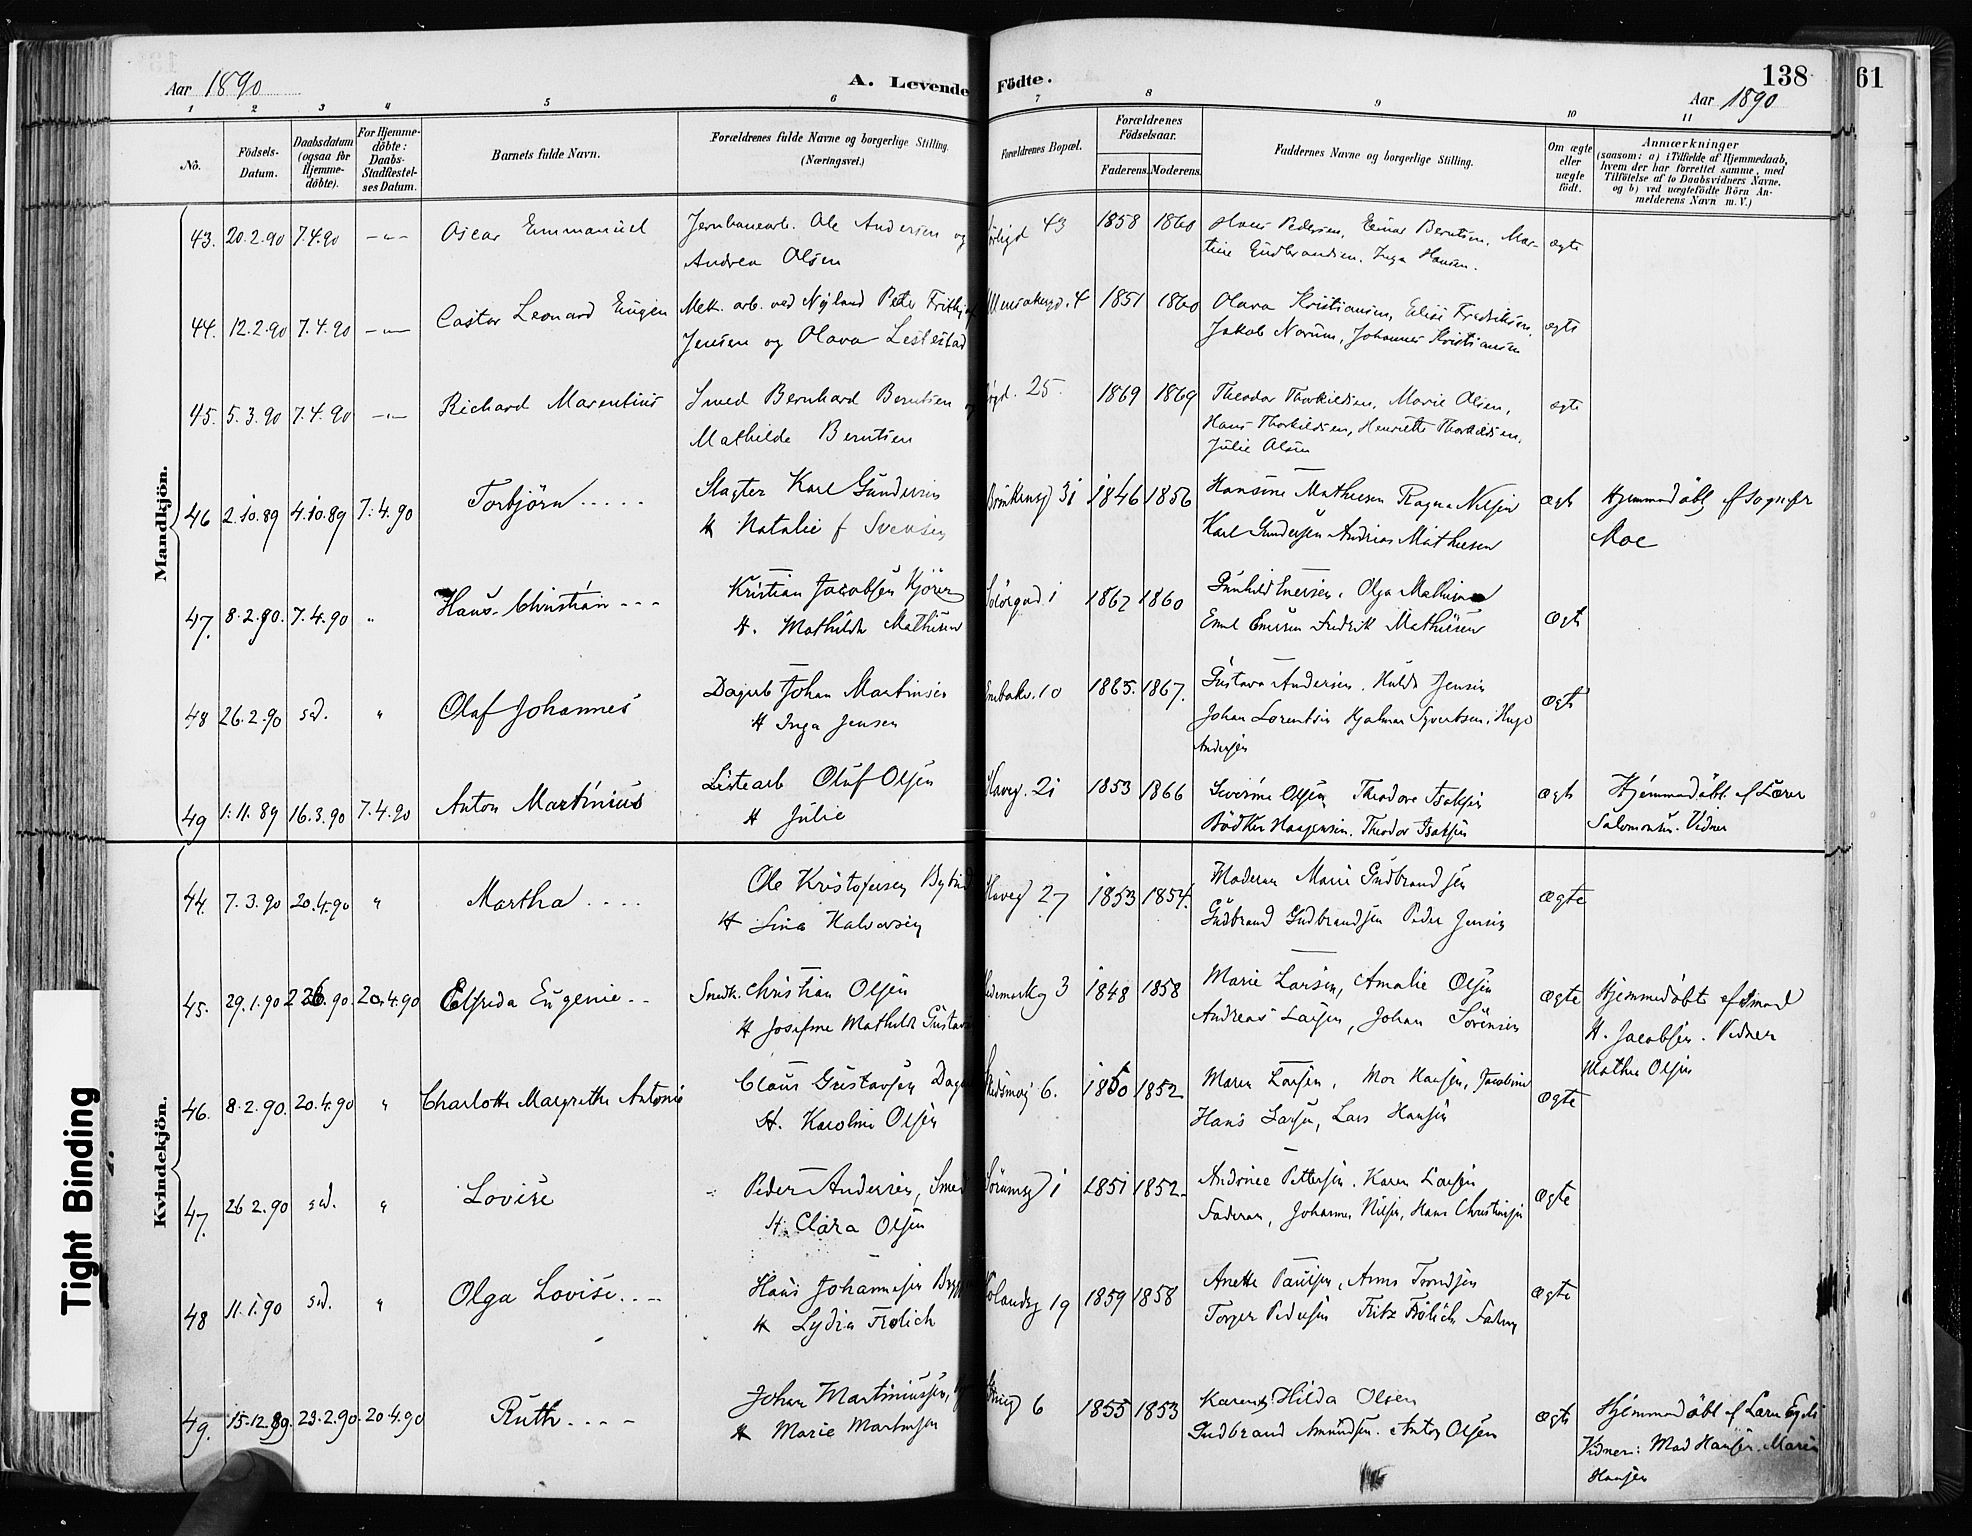 Aar 1890
A. Levende Födte.
138
61
Aar 1890
1 2 3 4 5 6 7 8 9 10 11
No.
Födsels-Datum.
Daabsdatum (ogsaa for Hjemme-döbte).
For Hjemme-döbte: Daabs-Stadfestel-ses Datum.
Barnets fulde Navn.
Forældrenes fulde Navne og borgerlige Stilling. (Næringsvei.)
Forældrenes Bopæl.
Forældrenes Födselsaar.
Faderens. Moderens.
Faddernes Navne og borgerlige Stilling.
Om ægte eller uægte födt.
Anmærkninger
(saasom: a) i Tilfælde af Hjemmedaab, hvem der har forrettet samme, med Tilföielse af to Daabsvidners Navne. og b) ved uægtefödte Börn An-melderens Navn m. V.)
Mandkjön.
43. 20.2.90 7.4.90 -"- Oscar Emmanuel Jernbanearb. Ole Andersen og 43 1858 1860 Hans Pedersen, Einar Berntsen, Mar-
Andrea Olsen tine Gudbrandsen, Inga Hansen. ægte
44. 12.2.90 7.4.90 -"- Castor Leonard Eugen Mek. arb. ved Nyland Peter Frithjof 4 1851 1860 Olava Kristiansen, Elise Fredriksen, ægte
Jensen og Olava Lestestad Jakob Narum, Johannes Kristiansen
45. 5.3.90 7.4.90 -"- Richard Marentius Smed Bernhard Berntsen og 25. 1869 1869 Theodor Thorkildsen, Marie Olsen, ægte
Mathilde Berntsen Hans Thorkildsen, Henriette Thorkildsen,
Julie Olsen
46 2.10.89 4.10.89 7.4.90 Torbjörn Slagter Karl Gundersen 31 1846 1856 Hansine Mathiesen Ragna Nilsen Ægte Hjemmedöbt af Sognepr
H Natalie f Svensen Karl Gundersen Andreas Mathiesen Moe
47. 8.2.90. 7.4.90 " Hans Christian Kristian Jacobsen Kjörer 1 1862 1860 Gunhild Iversen, Olga Mathisen Ægte
H. Mathilde Mathisen Emil Fredrik Mathisen
48 26.2.90 sd. " Olaf Johannes Dagarb Johan Martinsen 10 1865. 1867. Gustava Andersen. Hulda Jensen Ægte
H Inga Jensen Johan Lorentsen Hjalmar Syvertsen, Hugo
Andersen
49 1.11.89 16.3.90 7.4.90 Anton Martinius Listearb Oluf Olsen 21 1853 1866 Severine Olsen Theodore Isaksen Ægte Hjemmedöbt af Lærer
H Julie Bödker Haagensen. Theodor Isaksen Salomonsen. Vidner
Kvindekjön.
44. 7.3.90 20.4.90 " Martha Ole Kristofersen 27 1853 1854. Moderen Marie Gudbrandsen Ægte
H Lina Halvorsen Gudbrand Gudbrandsen Peder Jensen
45. 29.1.90 20.4.90 Elfrida Eugenie Snedk. Christian Olsen 3 1848 1858 Marie Larsen, Amalie Olsen Ægte Hjemmedöbt af Smed
H Josefine Mathilde Andreas Larsen, Johan Sörensen H. Jacobsen. Vidner
Mathea Olsen
46. 8.2.90. 20.4.90 " Charlotte Margrethe Antonie Claus Gustavsen 6. 1850 1852 Maren Larsen, Hansen, Jacobine Ægte
H. Karoline Olsen Hans Larsen, Lars Hansen
47. 26.2.90 sd. " Lovise Peder Andersen, Smed Sörumsg 1 1851 1852 Pettersen. Karen Larsen Ægte
H. Clara Olsen Faderen, Johannes Nilsen, Hans Christiansen
48 11.1.90 sd. " Olga Lovise Hans Johannesen 19 1859 1858 Anette Paulsen, Anne Trondsen Ægte
H Lydia Frölich Torger Pedersen Fritz Frölich Faderen
49. 15.12.89. 23.2.90 20.4.90 Ruth Johan Martiniussen, 6 1855 1853 Karen, Hilda Olsen Ægte Hjemmedöbt af
H Marie Martinsen Gudbrand Amundsen. Anton Olsen Vidner: Mad Hansen. Maren
Hansen
Tight Binding